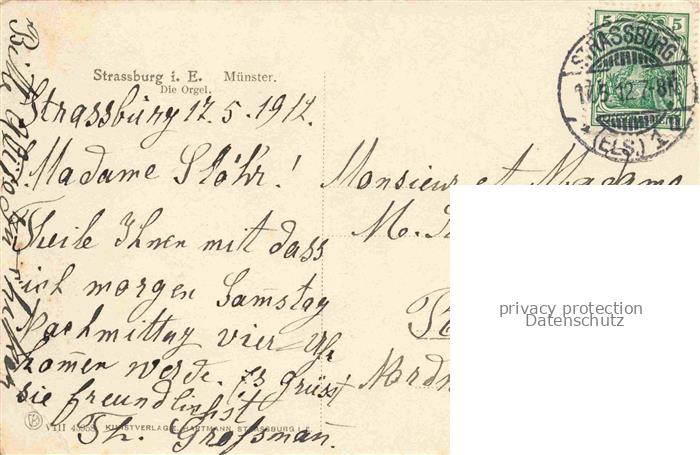 Strassburg i. E. Münster.
Die Orgel.
Strassburg 17.5.1912.
Madame Stöhr!
Teile Ihnen mit dass
ich morgen Samstag
Nachmittag vier Uhr
komen werde. Es grüsst
sie freundlichst
Th. Grossman.
Bitte
VIII
KUNSTVERLAG HARTMANN, STRASSBURG I. E.
Monsieur et Madame
M.
5 5
STRASSBURG
17.5.12.7-8N
* (ELS.) 1
privacy protection
Datenschutz